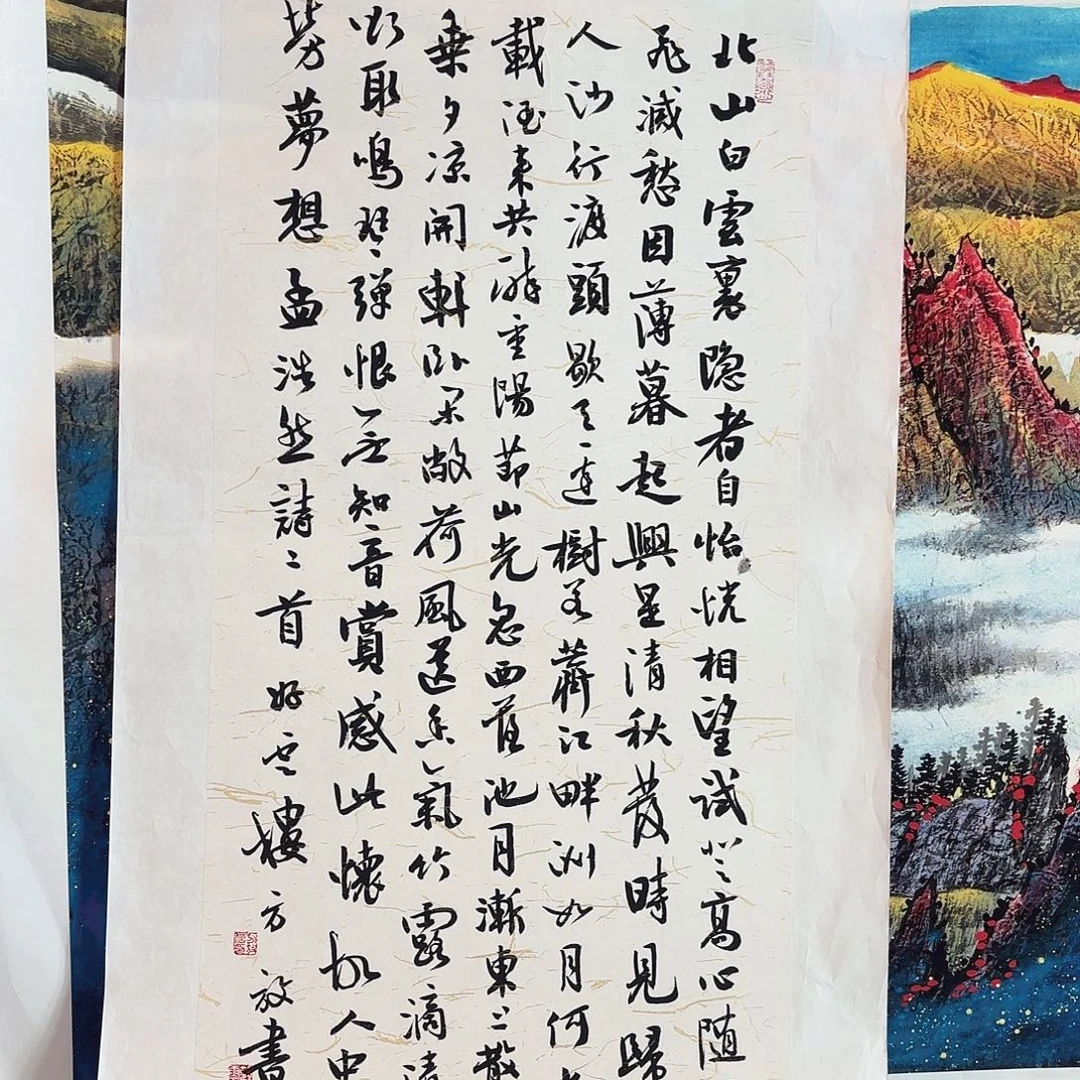 北山白雲裏隐者自怡悦相望試登高心随
飛滅愁因薄暮起興是清秋發時見歸
人沙行渡頭歇天邊樹若薺江畔洲如月何
載酒來共醉重陽節山光忽西落池月漸東上散
乘夕凉開軒卧閑敞荷風送香氣竹露滴清
欲取鳴琴彈恨無知音賞感此懷故人中
勞夢想孟浩然詩二首好雲樓方放書